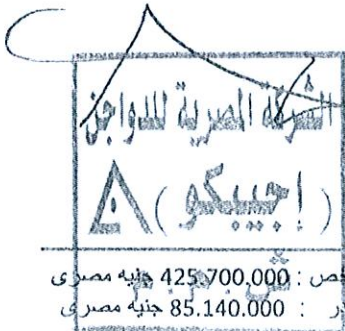 الشركة المصرية للدواجن
( إجيبيكو )
ش . م . م
ص : 425.700.000 جنيه مصرى
ر : 85.140.000 جنيه مصرى